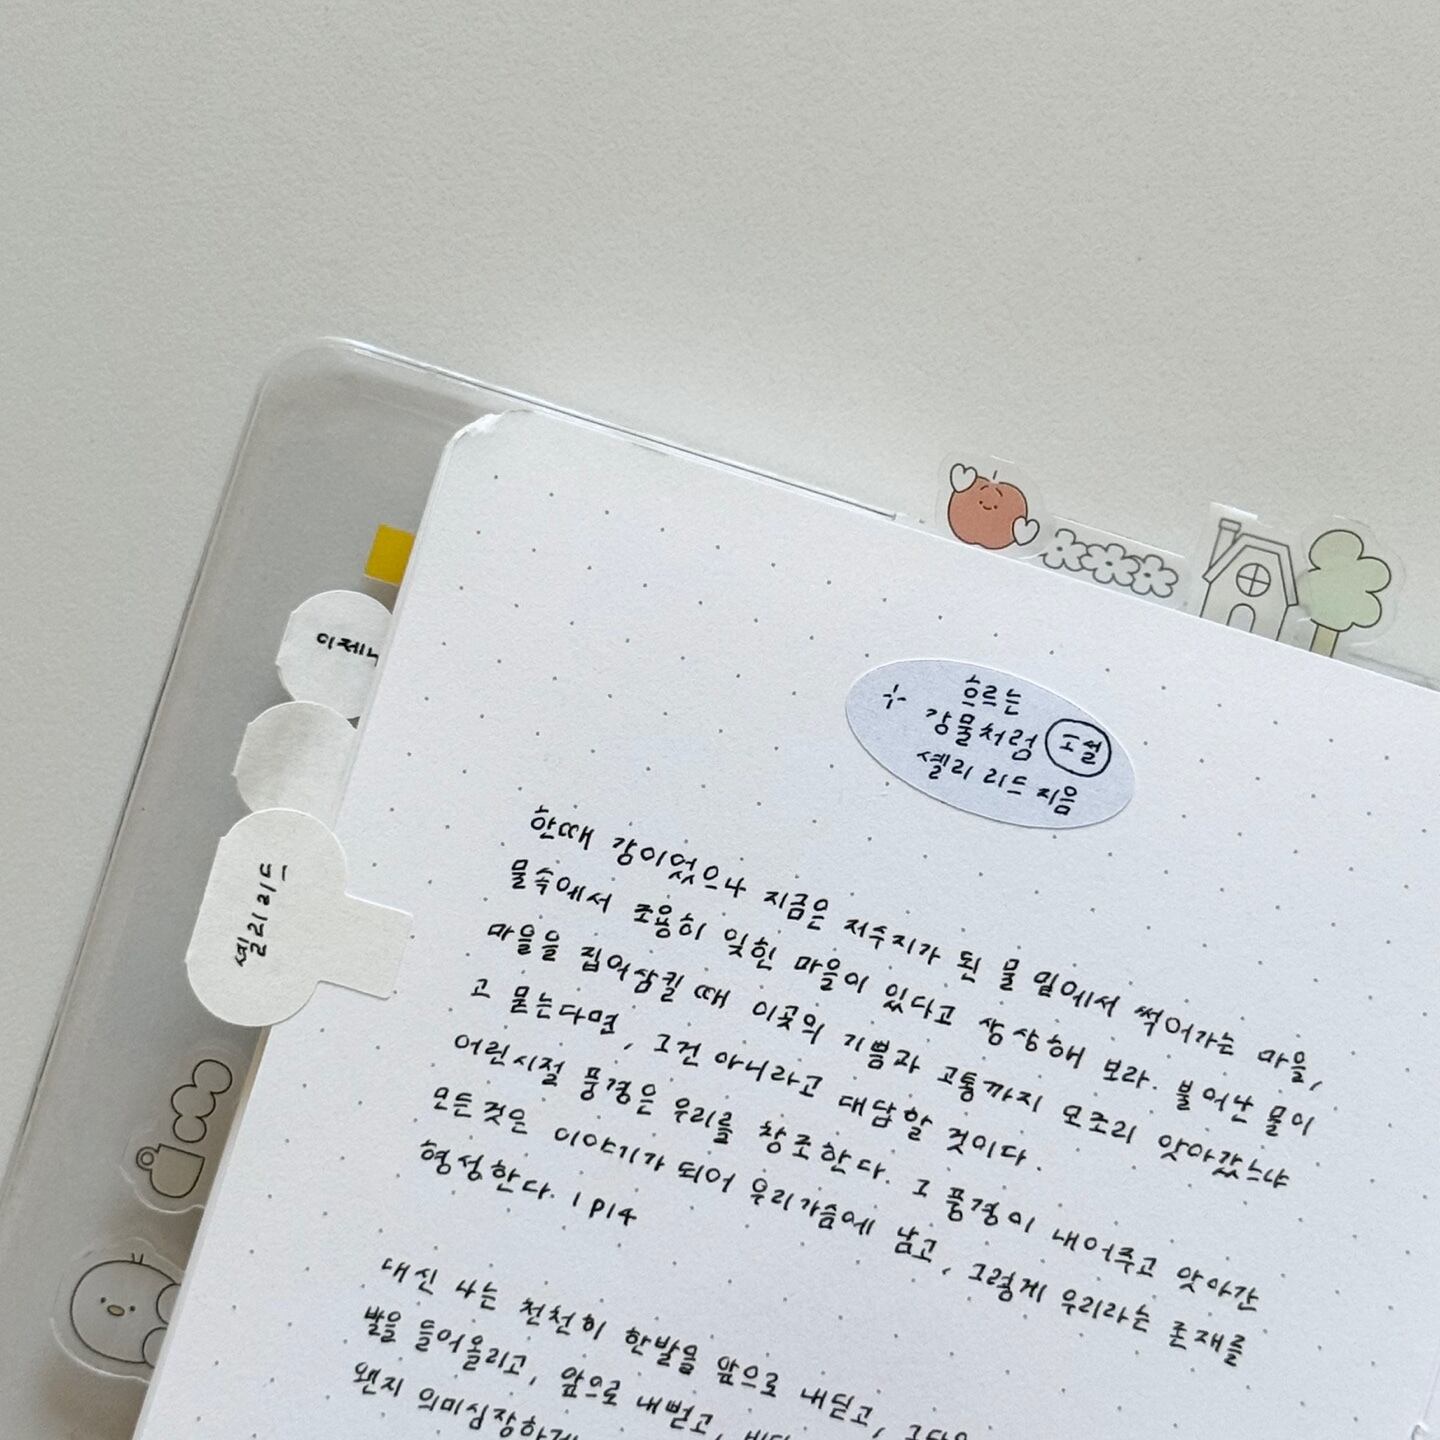 흐르는
강물처럼 소설
셸리 리드 지음
한때 강이었으나 지금은 저수지가 된 물 밑에서 썩어가는 마을,
물속에서 조용히 잊힌 마을이 있다고 상상해 보라. 불어난 물이
마을을 집어삼킬 때 이곳의 기쁨과 고통까지 모조리 앗아갔느냐
고 묻는다면, 그건 아니라고 대답할 것이다.
어린시절 풍경은 우리를 창조한다. 그 풍경이 내어주고 앗아간
모든것은 이야기가 되어 우리가슴에 남고, 그렇게 우리라는 존재를
형성한다. | p14
대신 나는 천천히 한발을 앞으로 내딛고,
발을 들어올리고, 앞으로 내뻗고,
왠지 의미심장하게
이제니
셸리리드